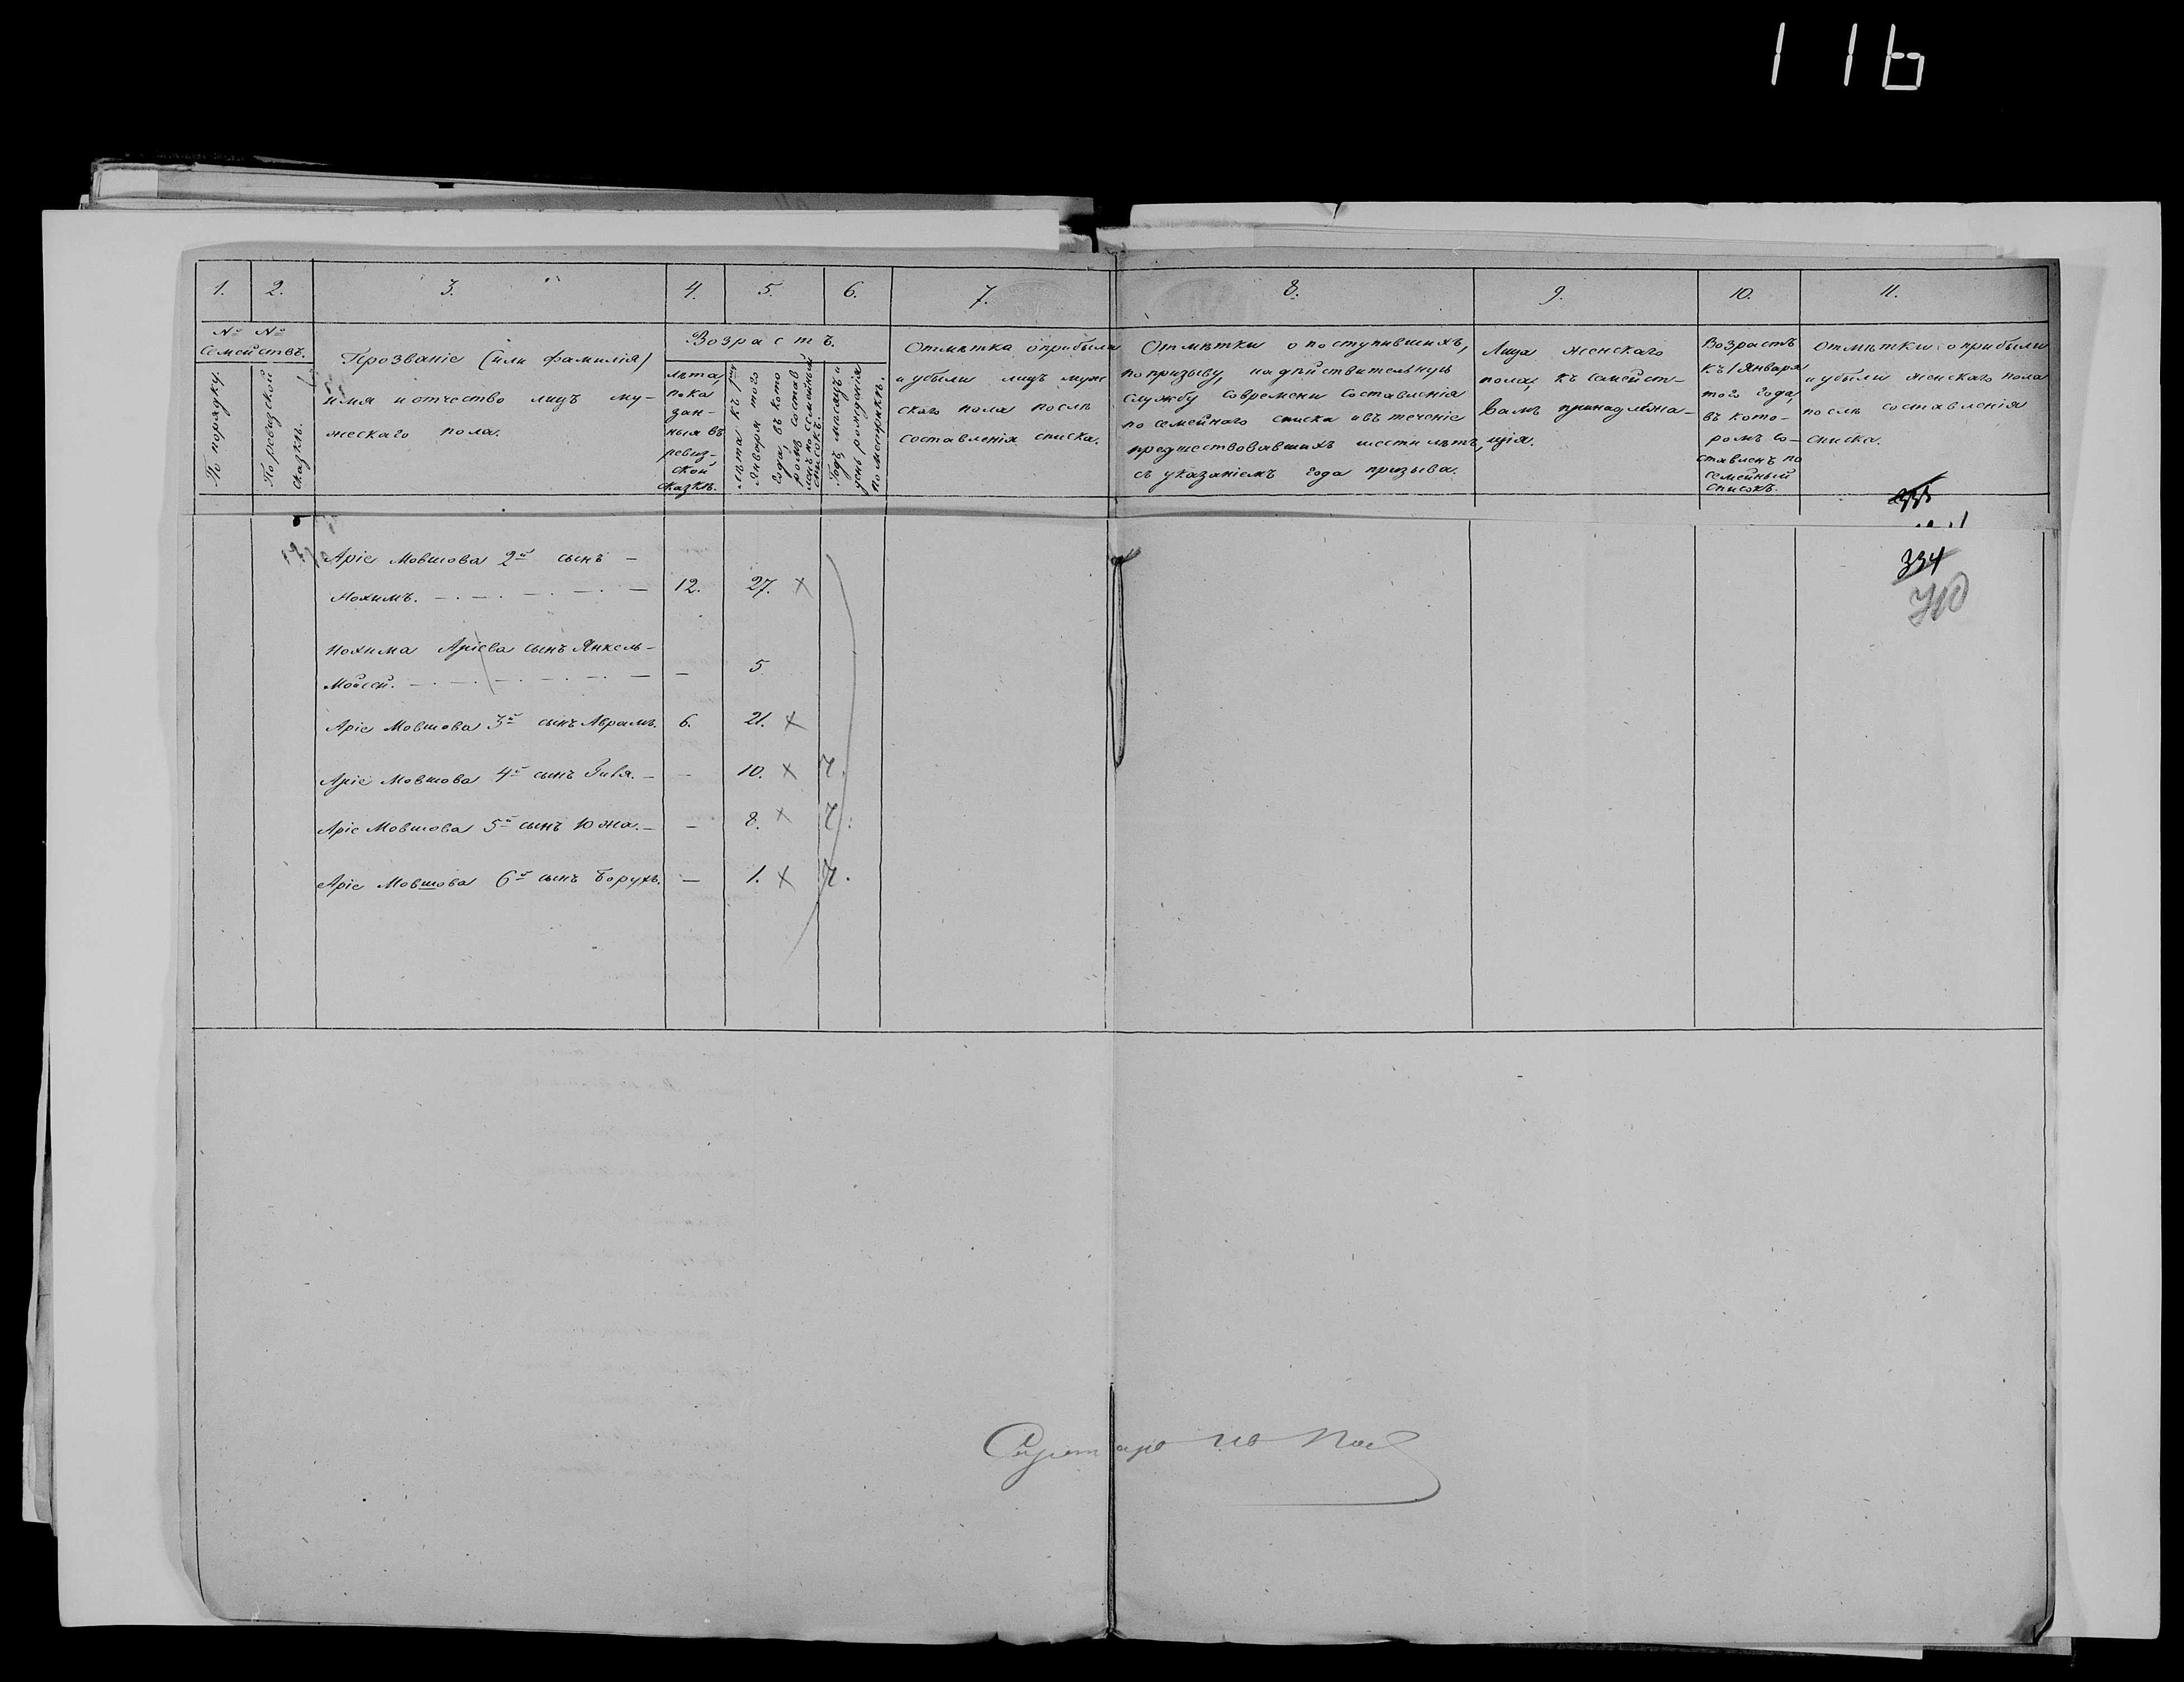 116
1. 2. 3. 4. 5. 6. 7. 8. 9. 10. 11.
№ №
Семействъ.
По порядку.
По ревизской
сказкѣ.
Прозваніе (или фамилія)
имя и отчество лицъ му-
жескаго пола.
Возрастъ.
Лѣта,
пока
зан-
ныя въ
ревиз-
ской
сказкѣ.
Лѣта къ 1му
Января того
года, въ кото
ромъ состав
ленъ по семейный
списокъ.
Годъ, мѣсяцъ и
день рожденія
по метрикѣ.
Отмѣтка о прибыли
и убыли лицъ муж
скаго пола послѣ
составленія списка.
Отмѣтки о поступившихъ,
по призыву, на дѣйствительную
службу со времени составленія
по семейнаго списка и въ теченіе
предшествовавшихъ шести лѣтъ,
съ указаніемъ года призыва.
Лица женскаго
пола, къ семейст-
вамъ принадлежа-
щія.
Возрастъ
къ 1 Января
того года,
въ кото-
ромъ со-
ставленъ по
семейный
списокъ.
Отмѣтки о прибыли
и убыли женскаго пола
послѣ составленія
списка.
Аріе Мовшова 2й сынъ –
Нохимъ. 12. 27. ×
334
Нохима Аріева сынъ Янкель-
Мойсей. – 5
Аріе Мовшова 3й сынъ Абрамъ. 6. 21. ×
Аріе Мовшова 4й сынъ – – 10. ×
Аріе Мовшова 5й сынъ – – 8. ×
Аріе Мовшова 6й сынъ Борухъ. – 1. ×